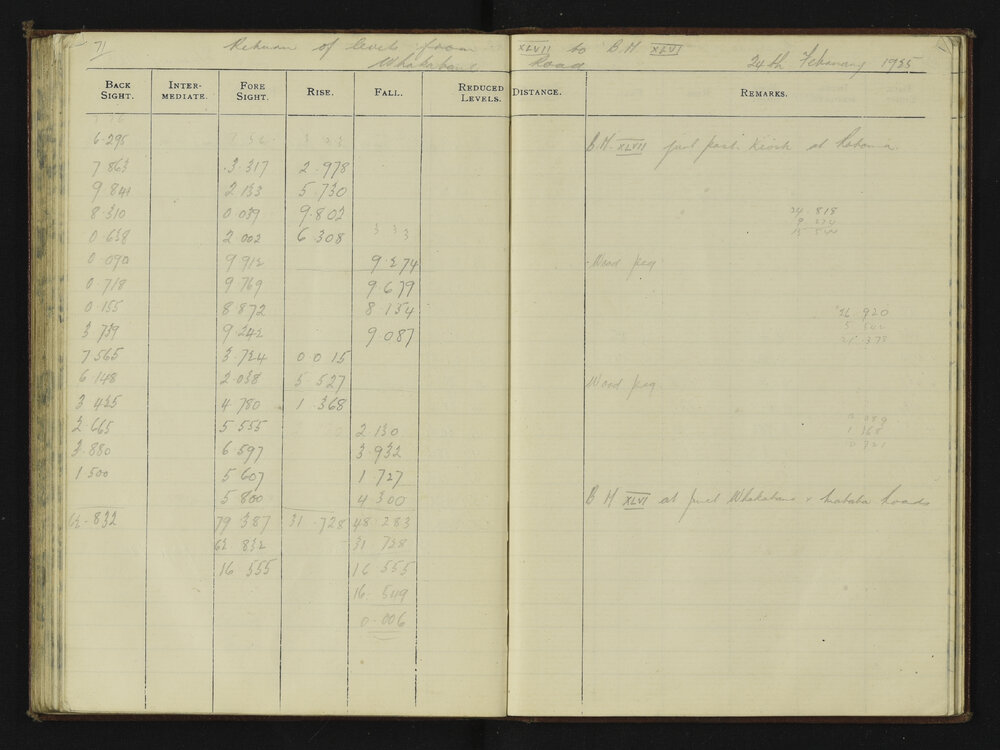 71 Return of levels from XLVII to B M XLVI
Road 24th February 1925
BACK SIGHT. INTER-MEDIATE. FORE SIGHT. RISE. FALL. REDUCED LEVELS. DISTANCE. REMARKS.
6.295 B.M. XLVII just past Kiosk at
7.863 3.317 2.978
9.841 2.133 5.730
8.310 0.039 9.802 24.818
0.638 2.002 6.308
0.090 9.912 9.274 Wood peg
0.718 9.769 9.679
0.155 8.872 8.154 26.920
3.739 9.242 9.087 5.542
7.565 3.724 0.015 21.378
6.148 2.038 5.527 Wood peg
3.425 4.780 1.368
2.665 5.555 2.130
3.880 6.597 3.932
1.500 5.607 1.727
5.800 4.300 B M XLVI at junct Roads
62.832 79.387 31.728 48.283
62.832 31.728
16.555 16.555
16.549
0.006